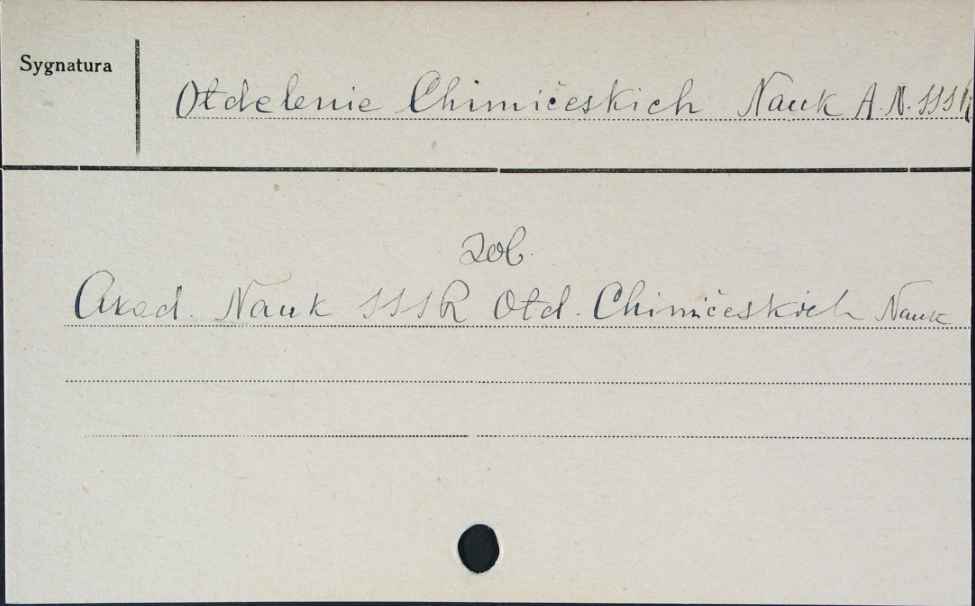 Sygnatura
Otdelenie Chimičeskich Nauk A.N. SSSR
zob.
Akad. Nauk SSSR Otd. Chimičeskich Nauk